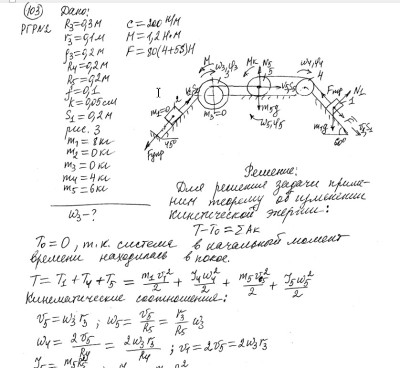 103
РГР N2
Дано:
R₃=0,3 м
r₃=0,1 м
ρ₃=0,2 м
R₄=0,2 м
R₅=0,2 м
f=0,1
k=0,05 см
S₁=0,2 м
рис. 3
m₁=8 кг
m₂=0 кг
m₃=0 кг
m₄=4 кг
m₅=6 кг
ω₃-?
c=200 Н/м
M=1,2 Н·м
F=80(4+5S)Н
M ω₃,φ₃ Mк N₅ 5 ω₄,φ₄ 4
m₃=0 m₅g ω₅,φ₅
Fтр N₁ 1
45° 60°
Решение:
Для решения задачи приме-
ним теорему об изменении
кинетической энергии:
T-T₀=ΣAₖ
T₀=0, т.к. система в начальный момент
времени находилась в покое.
T=T₁+T₄+T₅= m₁v₁²/2 + J₄ω₄²/2 + m₅v₅²/2 + J₅ω₅²/2
Кинематические соотношения:
v₅=ω₃r₃; ω₅= v₅/R₅ = r₃/R₅ ω₃
ω₄= 2v₅/R₄ = 2ω₃r₃/R₄; v₁=2v₅=2ω₃r₃